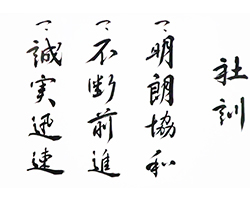 社訓
一、明朗協和
一、不断前進
一、誠実迅速